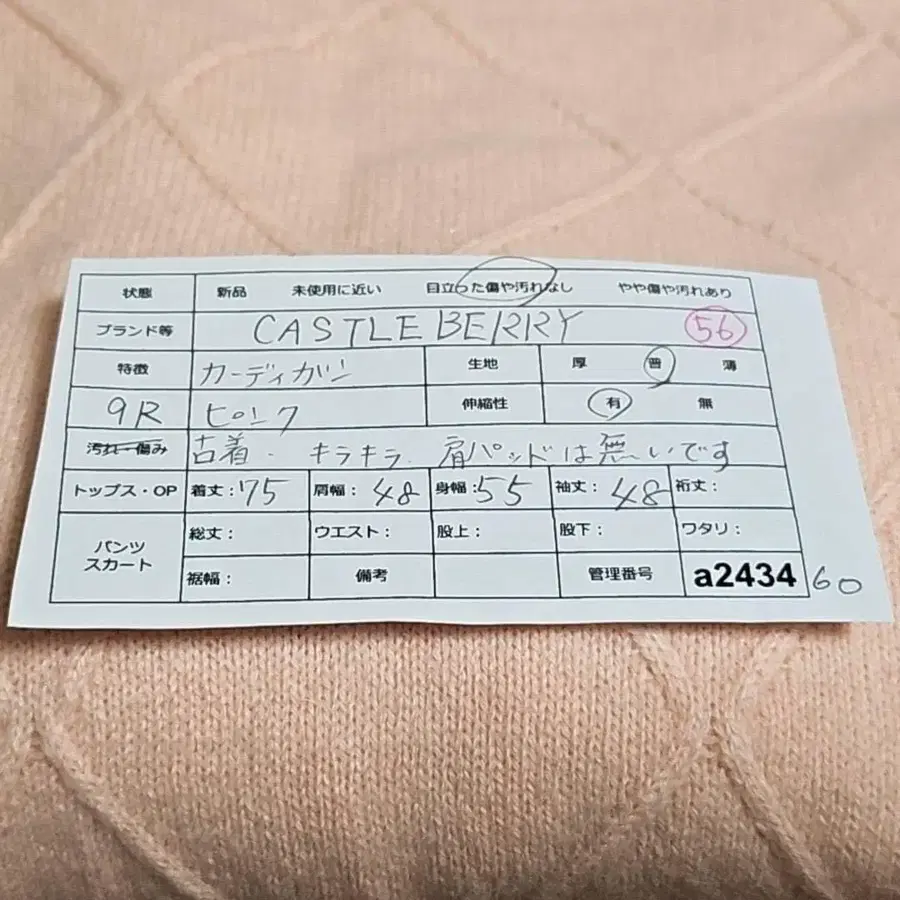 状態 新品 未使用に近い 目立った傷や汚れなし やや傷や汚れあり
ブランド等 CASTLE BERRY 56
特徴 カーディガン 生地 厚 普 薄
9R ピンク 伸縮性 有 無
汚れ・傷み 古着. キラキラ. 肩パッドは無いです
トップス・OP 着丈:75 肩幅:48 身幅:55 袖丈:48 裄丈:
パンツ スカート 総丈: ウエスト: 股上: 股下: ワタリ:
裾幅: 備考 管理番号 a2434 60